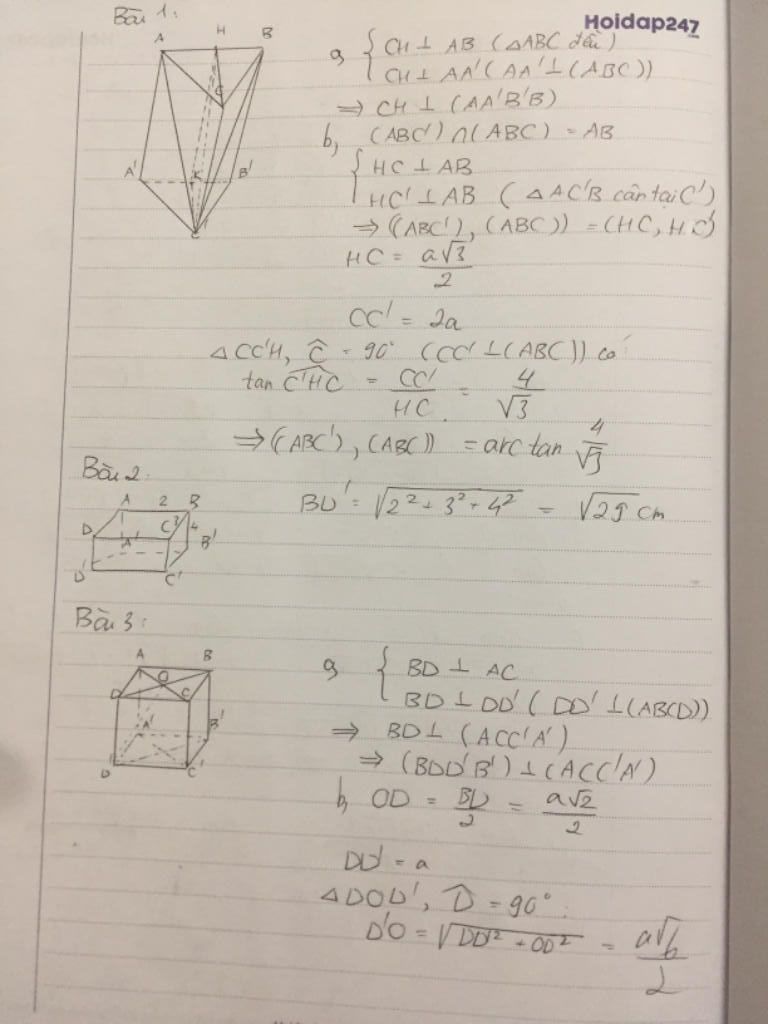 Bài 1:
Hoidap247
A H B
C
A' K B'
C'
a, { CH ⊥ AB (△ABC đều)
CH ⊥ AA' (AA' ⊥ (ABC))
⇒ CH ⊥ (AA'B'B)
b, (ABC') ∩ (ABC) = AB
{ HC ⊥ AB
HC' ⊥ AB (△AC'B cân tại C')
⇒ ((ABC'), (ABC)) = (HC, HC')
HC = a√3/2
CC' = 2a
△CC'H, Ĉ = 90° (CC' ⊥ (ABC)) có
tan C'HC = CC'/HC = 4/√3
⇒ (ABC'), (ABC)) = arc tan 4/√3
Bài 2:
A 2 B
D C 3 4
A' B'
D' C'
BD' = √(2² + 3² + 4²) = √29 cm
Bài 3:
A B
O
D C
A' B'
D' C'
a, { BD ⊥ AC
BD ⊥ DD' (DD' ⊥ (ABCD))
⇒ BD ⊥ (ACC'A')
⇒ (BDD'B') ⊥ (ACC'A')
b, OD = BD/2 = a√2/2
DD' = a
△DOD', D̂ = 90°:
D'O = √(DD'² + OD²) = a√6/2